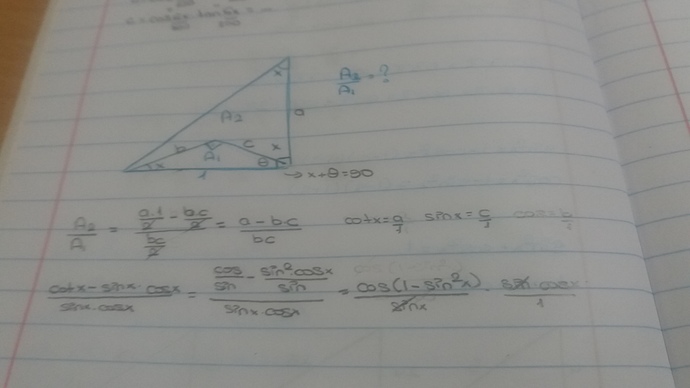 A₂/A₁ = ?
x
A₂
a
b
c
x
A₁
x
θ
1
→ x+θ=90
A₂/A = (a.1/2 - b.c/2)/(bc/2) = (a-bc)/bc cotx = a/1 sinx = c/1
(cotx-sinx.cosx)/(sinx.cosx) = (cos/sin - sin²cosx/sin)/(sinx.cosx) = cos(1-sin²x)/sinx . sin.cosx/1